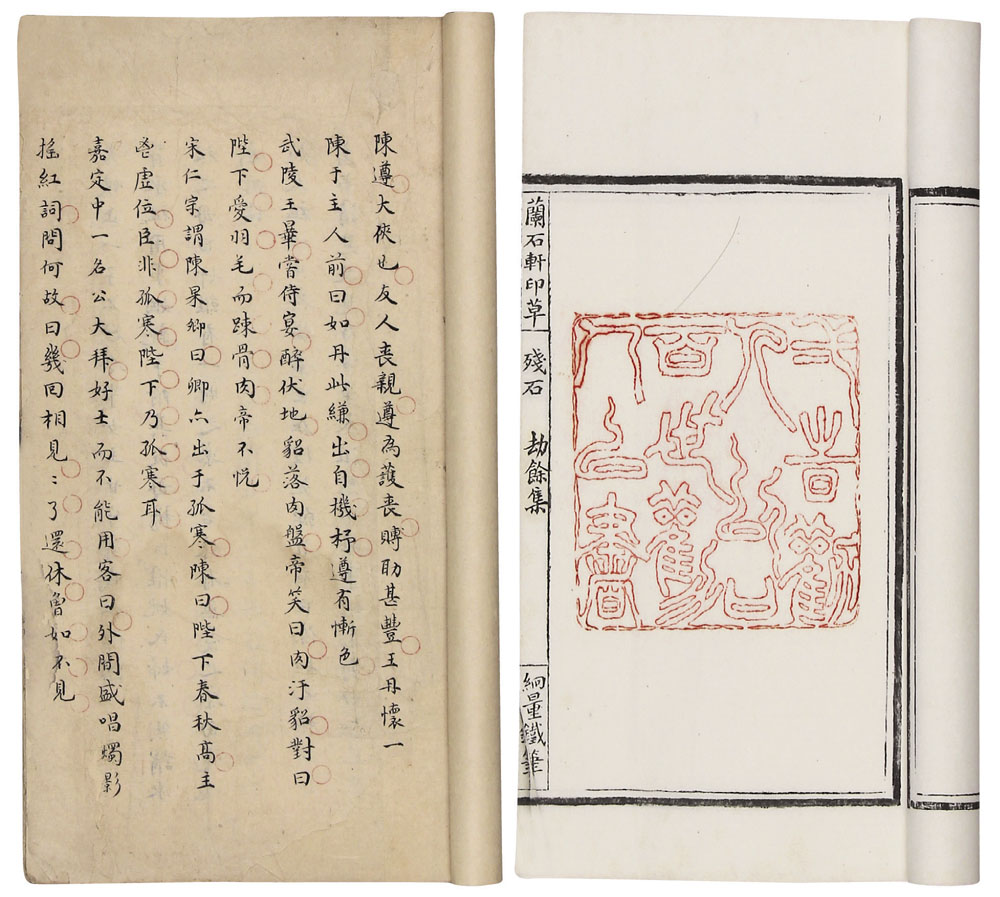 陳遵大俠也友人喪親遵為護喪賻助甚豐王丹懷一
陳于主人前曰如丹此縑出自機杼遵有慚色
武陵王曅嘗侍宴醉伏地貂落肉盤帝笑曰肉汙貂對曰
陛下愛羽毛而踈骨肉帝不悅
宋仁宗謂陳杲卿曰卿亦出于孤寒陳曰陛下春秋高主
鬯虛位臣非孤寒陛下乃孤寒耳
嘉定中一名公大拜好士而不能用客曰外間盛唱燭影
搖紅詞問何故曰幾囘相見〻了還休魯如不見
蘭石軒印草
殘石 劫餘集
絅量鐵筆